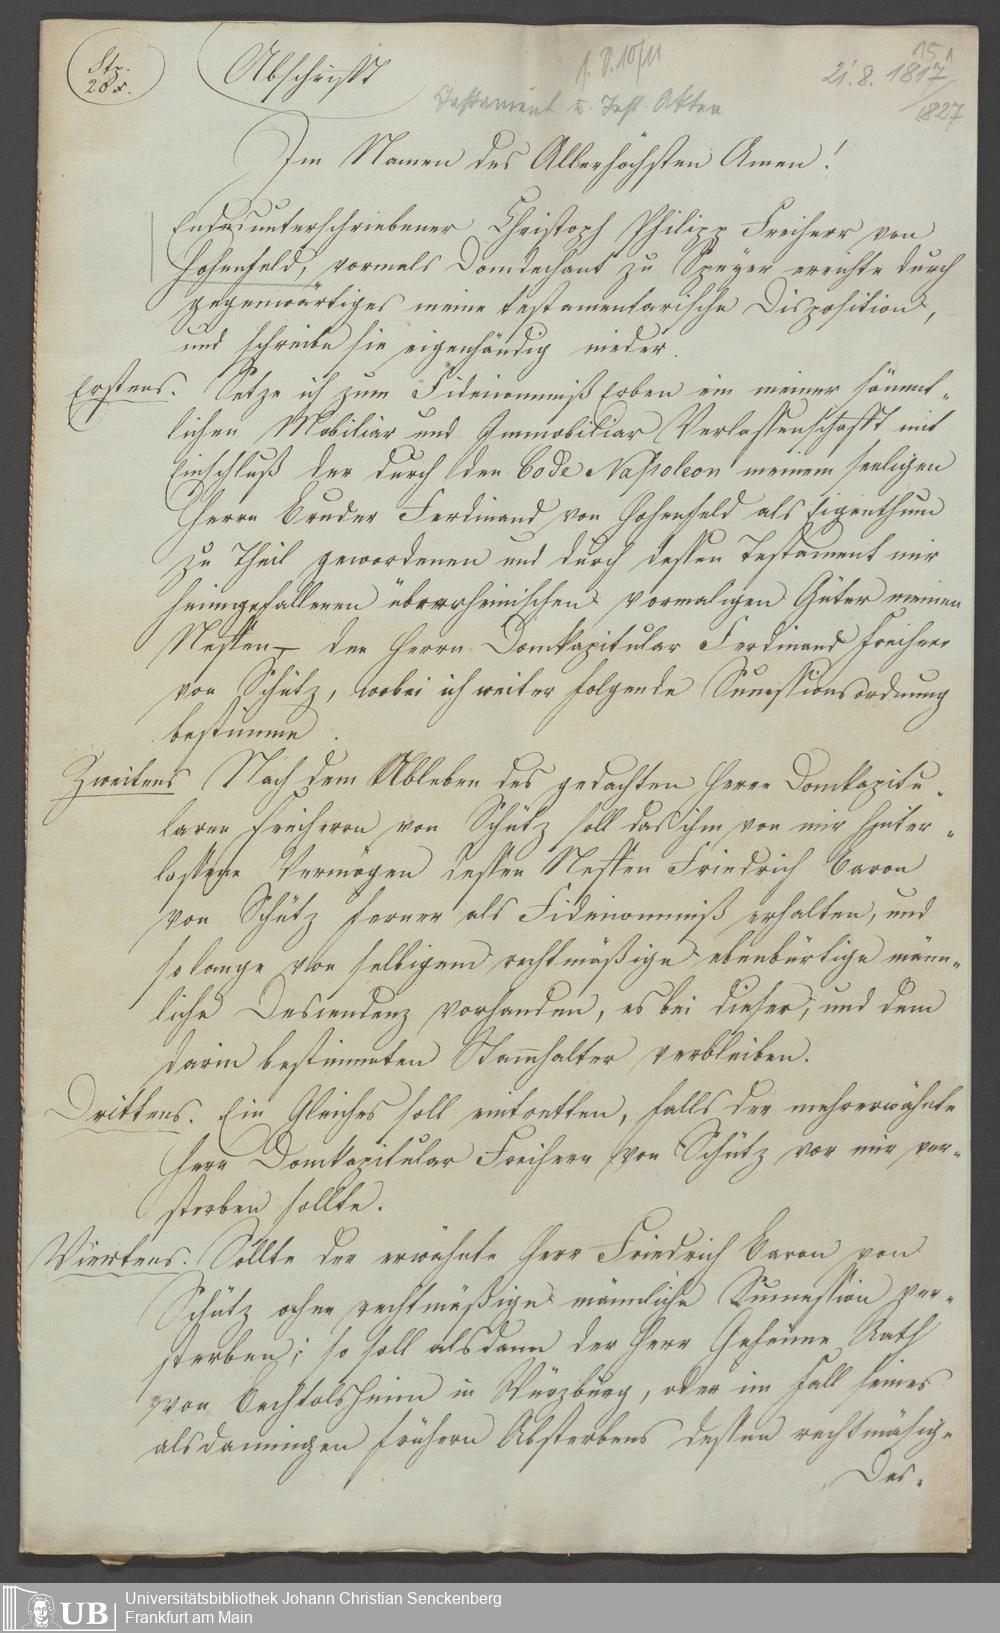 Str.
20 x.
Abschrifft
f. 8. 10/11
Testament u. Test. Akten
15
21. 8. 1817
1827
Im Namen des Allerhöchsten Amen!
Endesunterschriebener Christoph Philipp Freiherr von
Hohenfeld, vormals Domdechant zu Speyer errichte durch
gegenwärtiges meine testamentarische Disposition,
und schreibe sie eigenhändig nieder.
Erstens. Setze ich zum Fideicommiß Erben ein meiner sämmt-
lichen Mobiliar und Immobiliar Verlassenschafft mit
Einschluß der durch den Code Napoleon meinem seeligen
Herrn Bruder Ferdinand von Hohenfeld als Eigenthum
zu Theil gewordenen und durch dessen Testament mir
heimgefallenen überrheinischen vormaligen Güter meinen
Neffen den Herrn Domkapitular Ferdinand Freiherr
von Schütz, wobei ich weiter folgende Successionsordnung
bestimme.
Zweitens Nach dem Ableben des gedachten Herrn Domkapitu-
laren Freiherrn von Schütz soll das ihm von mir hinter-
lassene Vermögen dessen Neffen Friedrich Baron
von Schütz ferner als Fideicommiß erhalten, und
so lange von selbigem rechtmäßige ebenbürtige männ-
liche Descendenz vorhanden, es bei dieser, und dem
darin bestimmten Stammhalter verbleiben.
Drittens. Ein Gleiches soll eintretten, falls der mehrerwähnte
Herr Domkapitular Freiherr von Schütz vor mir ver-
sterben sollte.
Viertens. Sollte der erwähnte Herr Friedrich Baron von
Schütz ohne rechtmäßige männliche Succession ver-
sterben; so soll alsdann der Herr Geheime Rath
von Bechtolsheim in Würzburg, oder im Fall seines
alsdannigen frühern Absterbens dessen rechtmäßige
Des-
UB
Universitätsbibliothek Johann Christian Senckenberg
Frankfurt am Main